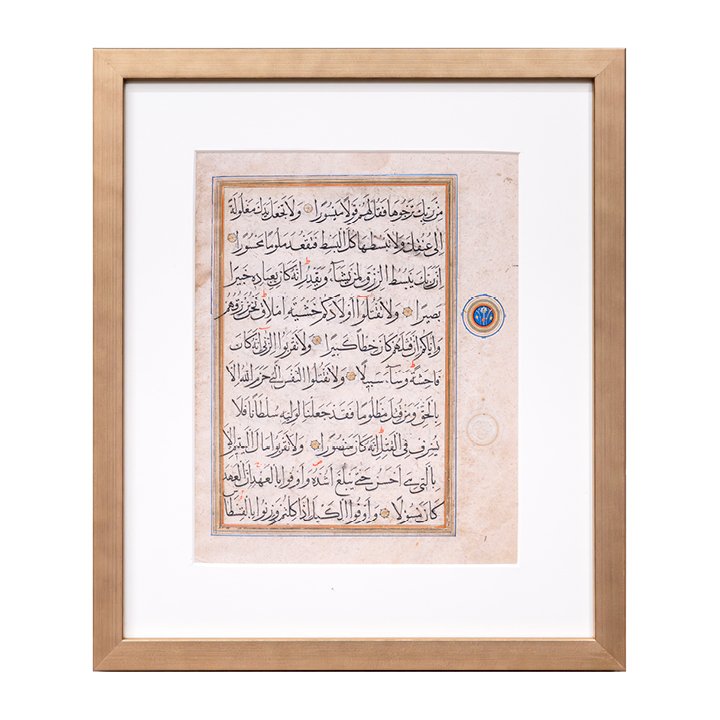 من ربك ترجوها فقل لهم قولا ميسورا ولا تجعل يدك مغلولة
الى عنقك ولا تبسطها كل البسط فتقعد ملوما محسورا
ان ربك يبسط الرزق لمن يشآء ويقدر انه كان بعباده خبيرا
بصيرا ولا تقتلوا اولادكم خشية املاق نحن نرزقهم
واياكم ان قتلهم كان خطأ كبيرا ولا تقربوا الزنى انه كان
فاحشة وسآء سبيلا ولا تقتلوا النفس التي حرم الله الا
بالحق ومن قتل مظلوما فقد جعلنا لوليه سلطانا فلا
يسرف في القتل انه كان منصورا ولا تقربوا مال اليتيم الا
بالتي هي احسن حتى يبلغ اشده واوفوا بالعهد ان العهد
كان مسولا واوفوا الكيل اذا كلتم وزنوا بالقسطاس